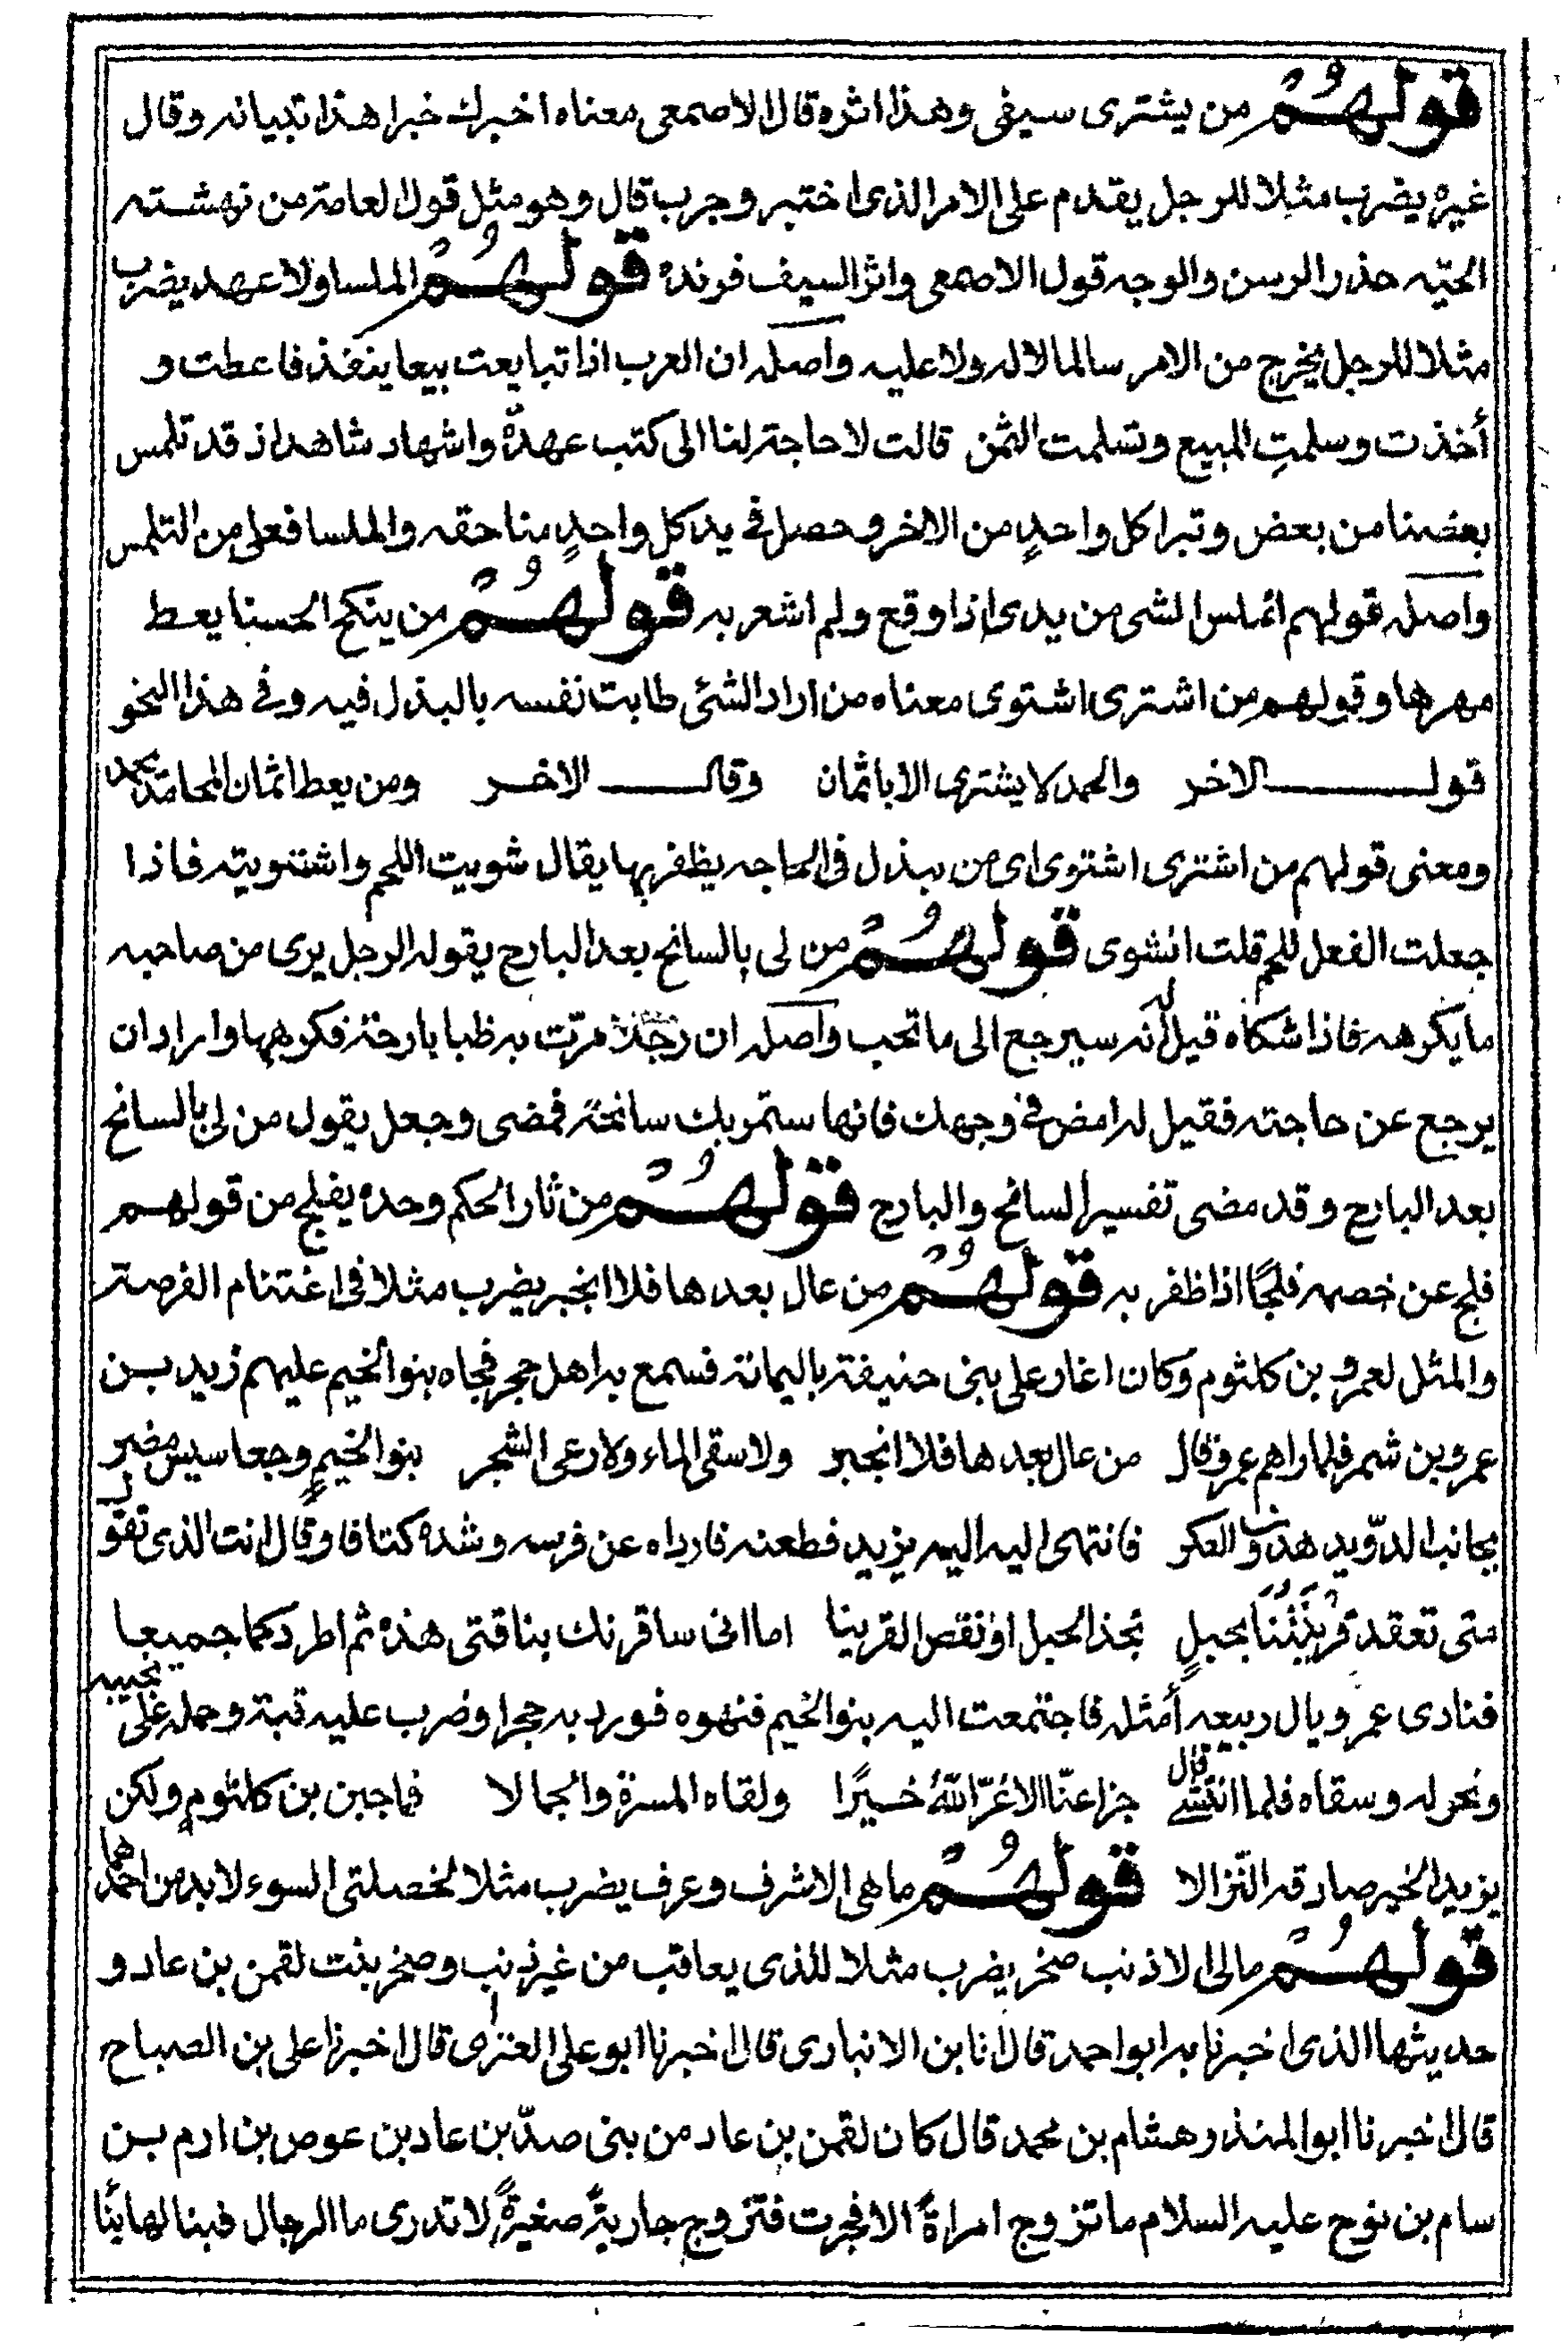 قولهُم من يشترى سيفى وهذا اثره قال الاصمعى معناه اخبرك خبرا هذا تبيانه وقال
غيره يضرب مثلا للرجل يقدم على الامر الذى اختبر وجرب قال وهو مثل قول العامة من نهشته
الحيّه حذر الرسن والوجه قول الاصمعى واثر السيف فرنده قولهُم الملسا ولا عهد يضرب
مثلا للرجل يخرج من الامر سالما لا له ولا عليه واصله ان العرب اذا تبايعت بيعا ينفذ فاعطت و
أخذت وسلمتِ المبيع وتسلمت الثمن قالت لا حاجة لنا الى كتب عهدةٍ واشهاد شاهد اذ قد تلمس
بعضنا من بعض وتبرا كل واحدٍ من الاخر وحصل فى يد كل واحدٍ منا حقه والملسا فعلى من التلمس
واصله قولهم اتملس الشى من يدى اذا وقع ولم اشعر به قولهُم من ينكح الحسنا يعط
مهرها وقولهم من اشترى اشتوى معناه من اراد الشئى طابت نفسه بالبذل فيه وفى هذا النحو
قول الاخر والحمد لا يشترى الا باثمان وقال الاخر ومن يعط اثمان المحامد يحمد
ومعنى قولهم من اشترى اشتوى اى من يبذل فى الحاجه يظفر بها يقال شويت اللحم واشتويته فاذا
جعلت الفعل للحم قلت انشوى قولهُم من لى بالسانح بعد البارح يقوله الرجل يرى من صاحبه
ما يكرهه فاذا شكاه قيل له أنه سيرجع الى ما تحب واصله ان رجلا مرّت به ظبا بارحة فكرهها واراد ان
يرجع عن حاجته فقيل له امض فى وجهك فانها ستمر بك سانحةً فمضى وجعل يقول من لى بالسانح
بعد البارح وقد مضى تفسير السانح والبارح قولهُم من ثار الحكم وحده يفلج من قولهم
فلج عن خصمه فلجًا اذا ظفر به قولهُم من عال بعدها فلا انجبر يضرب مثلا فى اغتنام الفرصة
والمثل لعمرو بن كلثوم وكان اغار على بنى حنيفة باليمامة فسمع به اهل حجر فجاه بنو الخيم عليهم زيد بن
عمرو بن شمر فلما راهم عمرو قال من عال بعدها فلا انجبر ولا سقى الماء ولا رعى الشجر بنو الخيم وجعاسيس مضر
بجانب الدوّيد هذب العكر فانتهى اليه اليه يزيد فطعنه فارداه عن فرسه وشده كتافا وقال انت الذى تقول
متى تعقد قرينتُنا بحبلٍ نجذ الحبل او نقص القرينا اما انى ساقرنك بناقتى هذه ثم اطردكما جميعا
فنادى عمرو يال ربيعه أمثله فاجتمعت اليه بنو الخيم فنهوه فورد به حجرا وضرب عليه قبة وحمله على نجيبه
ونحر له وسقاه فلما انتشى قال جزا عنّا الاغرّ اللهُ خيرًا ولقاه المسرة والجمالا فما جبن بن كلثومٍ ولكن
يزيد الخير صادقه النّزالا قولهُم ما هى الا شرف وعرف يضرب مثلا لخصلتى السوء لا بد من احدهما
قولهُم مالى الا ذنب صخر يضرب مثلا للذى يعاقب من غير ذنب وصخر بنت لقمن بن عاد و
حديثها الذى اخبرنا به ابو احمد قال انا بن الانبارى قال اخبرنا ابو على العنزى قال اخبرنا على بن الصباح
قال اخبرنا ابو المنذر هشام بن محمد قال كان لقمن بن عاد من بنى صدّ بن عاد بن عوص بن ارم بن
سام بن نوح عليه السلام ما تزوج امراةً الا فجرت فتزوج جاريةً صغيرةً لا تدرى ما الرجال فبنا لها بيتًا